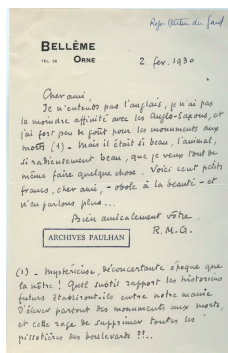 Roger Martin du Gard
BELLÊME
TÉL. 28 ORNE
2 fev. 1930
Cher ami,
Je n'entends pas l'anglais, je n'ai pas
la moindre affinité avec les Anglo-Saxons, et
j'ai fort peu de goût pour les monuments aux
morts (1) - Mais il était si beau, l'animal,
si radieusement beau, que je veux tout de
même faire quelque chose. Voici cent petits
francs, cher ami, - obole à la beauté - et
n'en parlons plus...
Bien amicalement vôtre.
R. M. G.
ARCHIVES PAULHAN
(1) - Mystérieuse, déconcertante époque que
la nôtre ! Quel subtil rapport les historiens
futurs établiront-ils entre notre manie
d'élever partout des monuments aux morts,
et cette rage de supprimer toutes les
pissotières des boulevards ??..